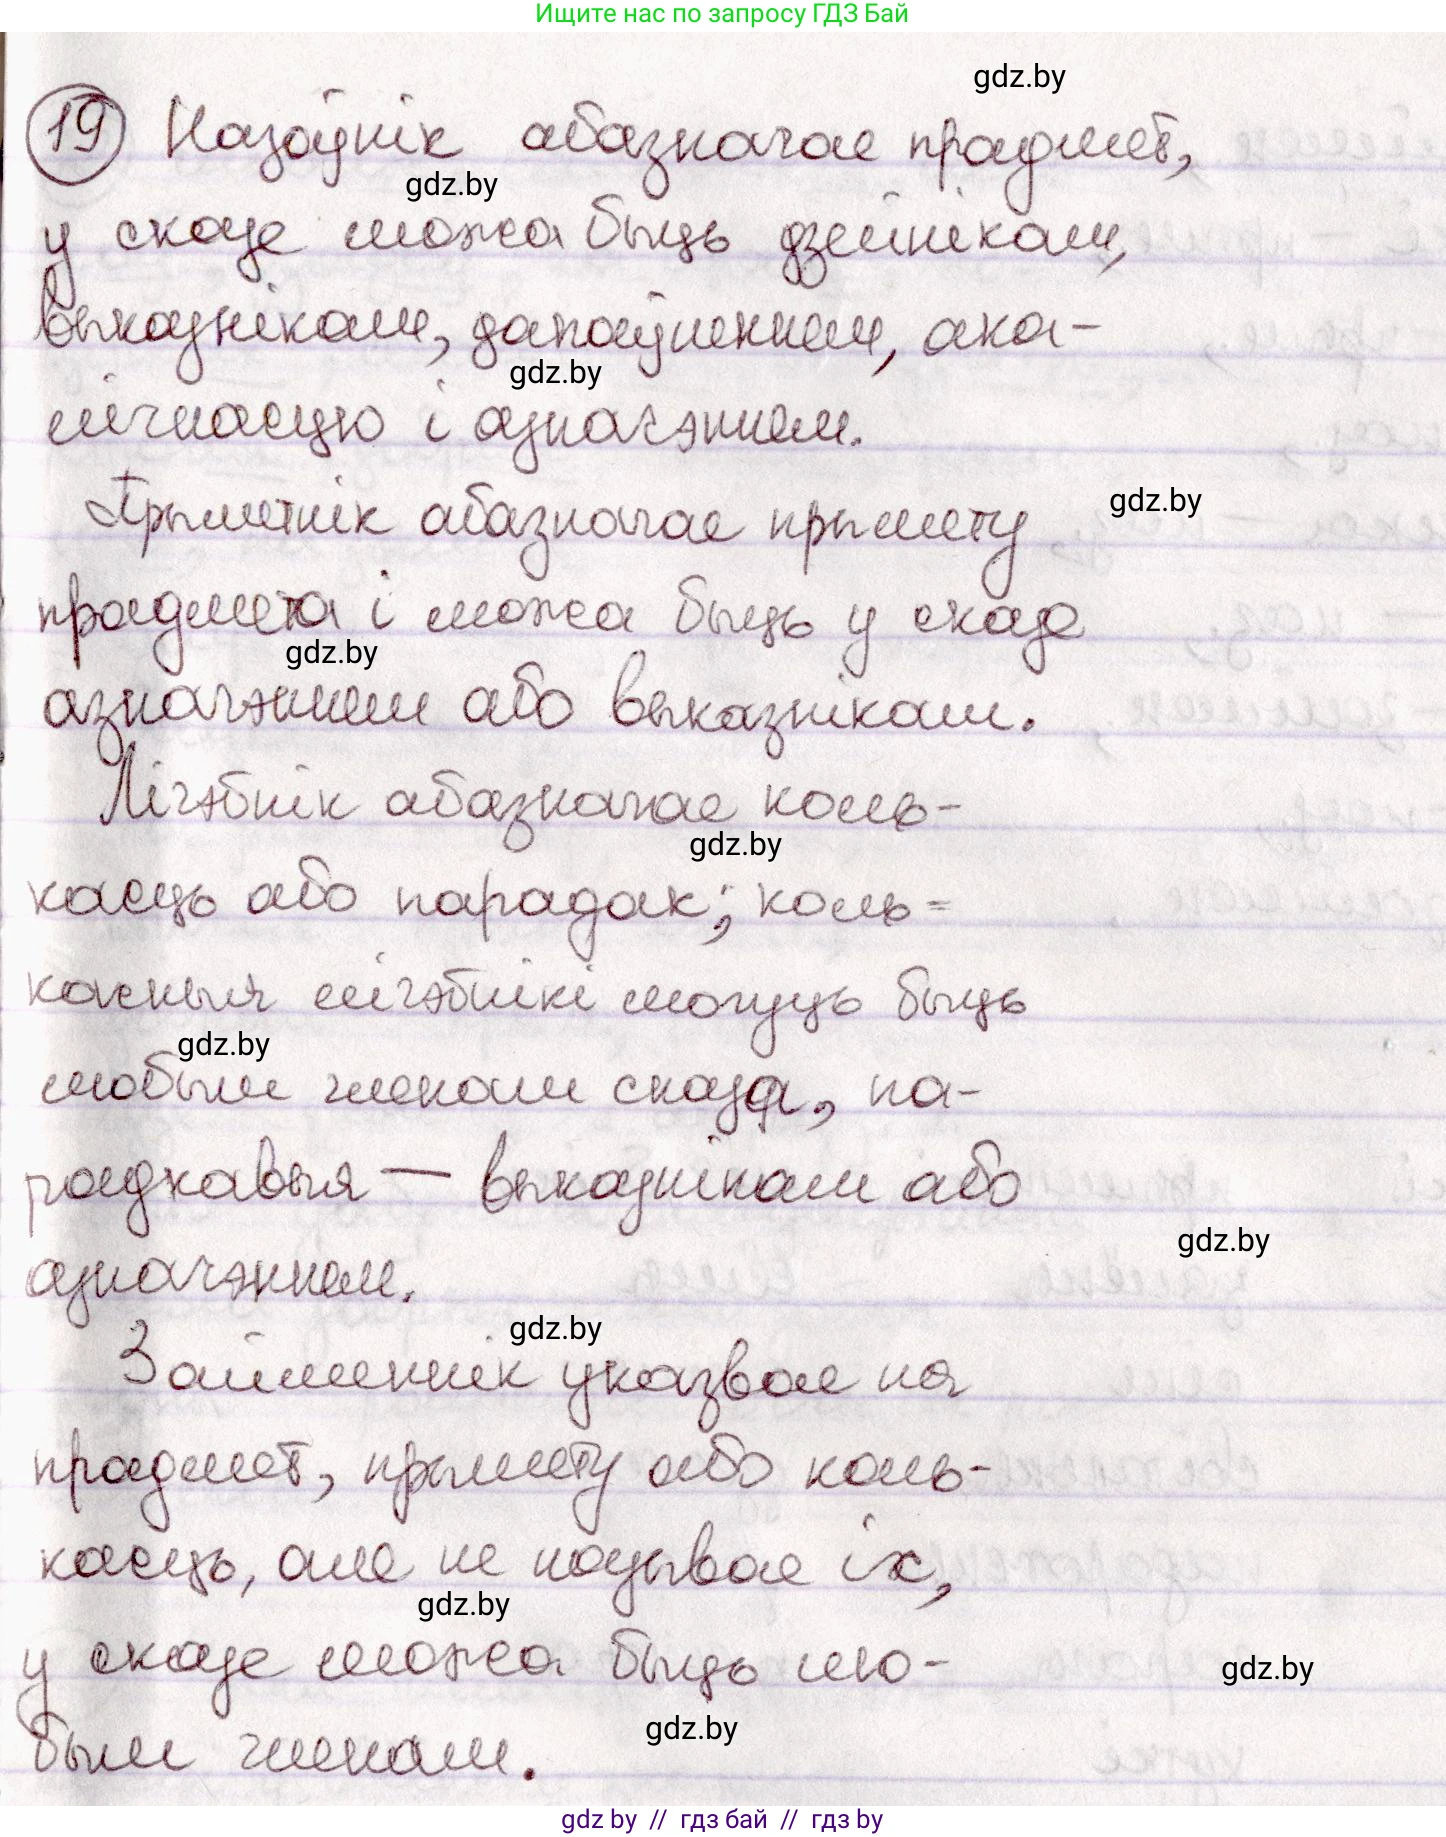 Ищите нас по запросу ГДЗ Бай
gdz.by
19 Назоўнік абазначае прадмет,
gdz.by
у сказе можа быць дзейнікам,
выказнікам, дапаўненнем, ака-
gdz.by
лічнасцю і азначэннем.
gdz.by
Прыметнік абазначае прымету
прадмета і можа быць у сказе
gdz.by
азначэннем або выказнікам.
Лічэбнік абазначае коль-
gdz.by
касць або парадак; коль-
касныя лічэбнікі могуць быць
gdz.by
любым членам сказа, па-
радкавыя — выказнікам або
gdz.by
азначэннем.
gdz.by
Займеннік указвае на
прадмет, прымету або коль-
касць, але не называе іх,
gdz.by
у сказе можа быць лю-
gdz.by
бым членам.
gdz.by
gdz by // гдз бай // гдз by